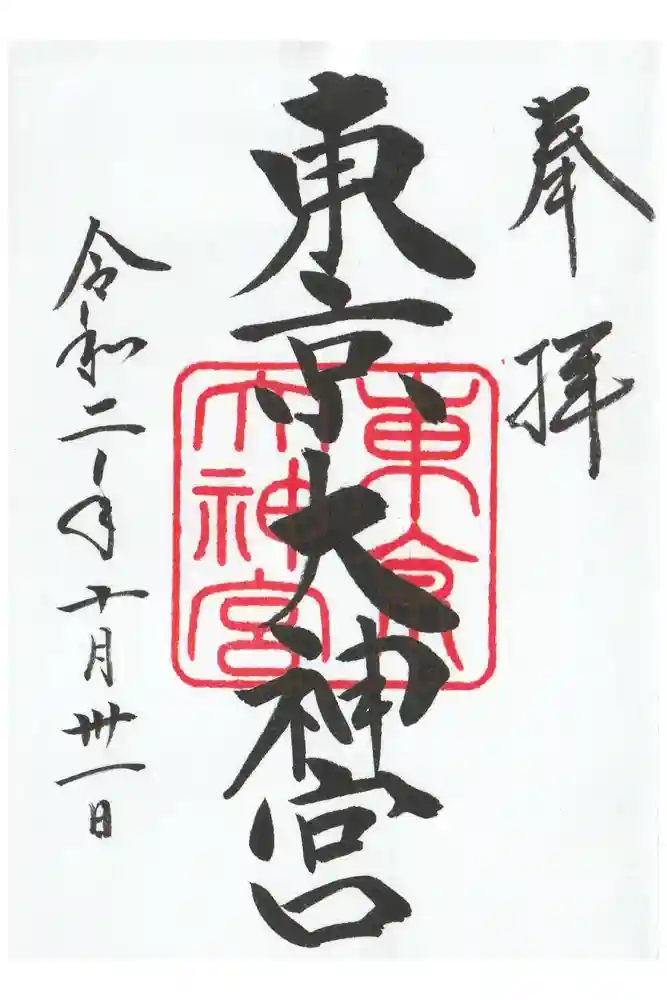 奉拝
東京大神宮
東京
大神宮
令和二年十月卅一日